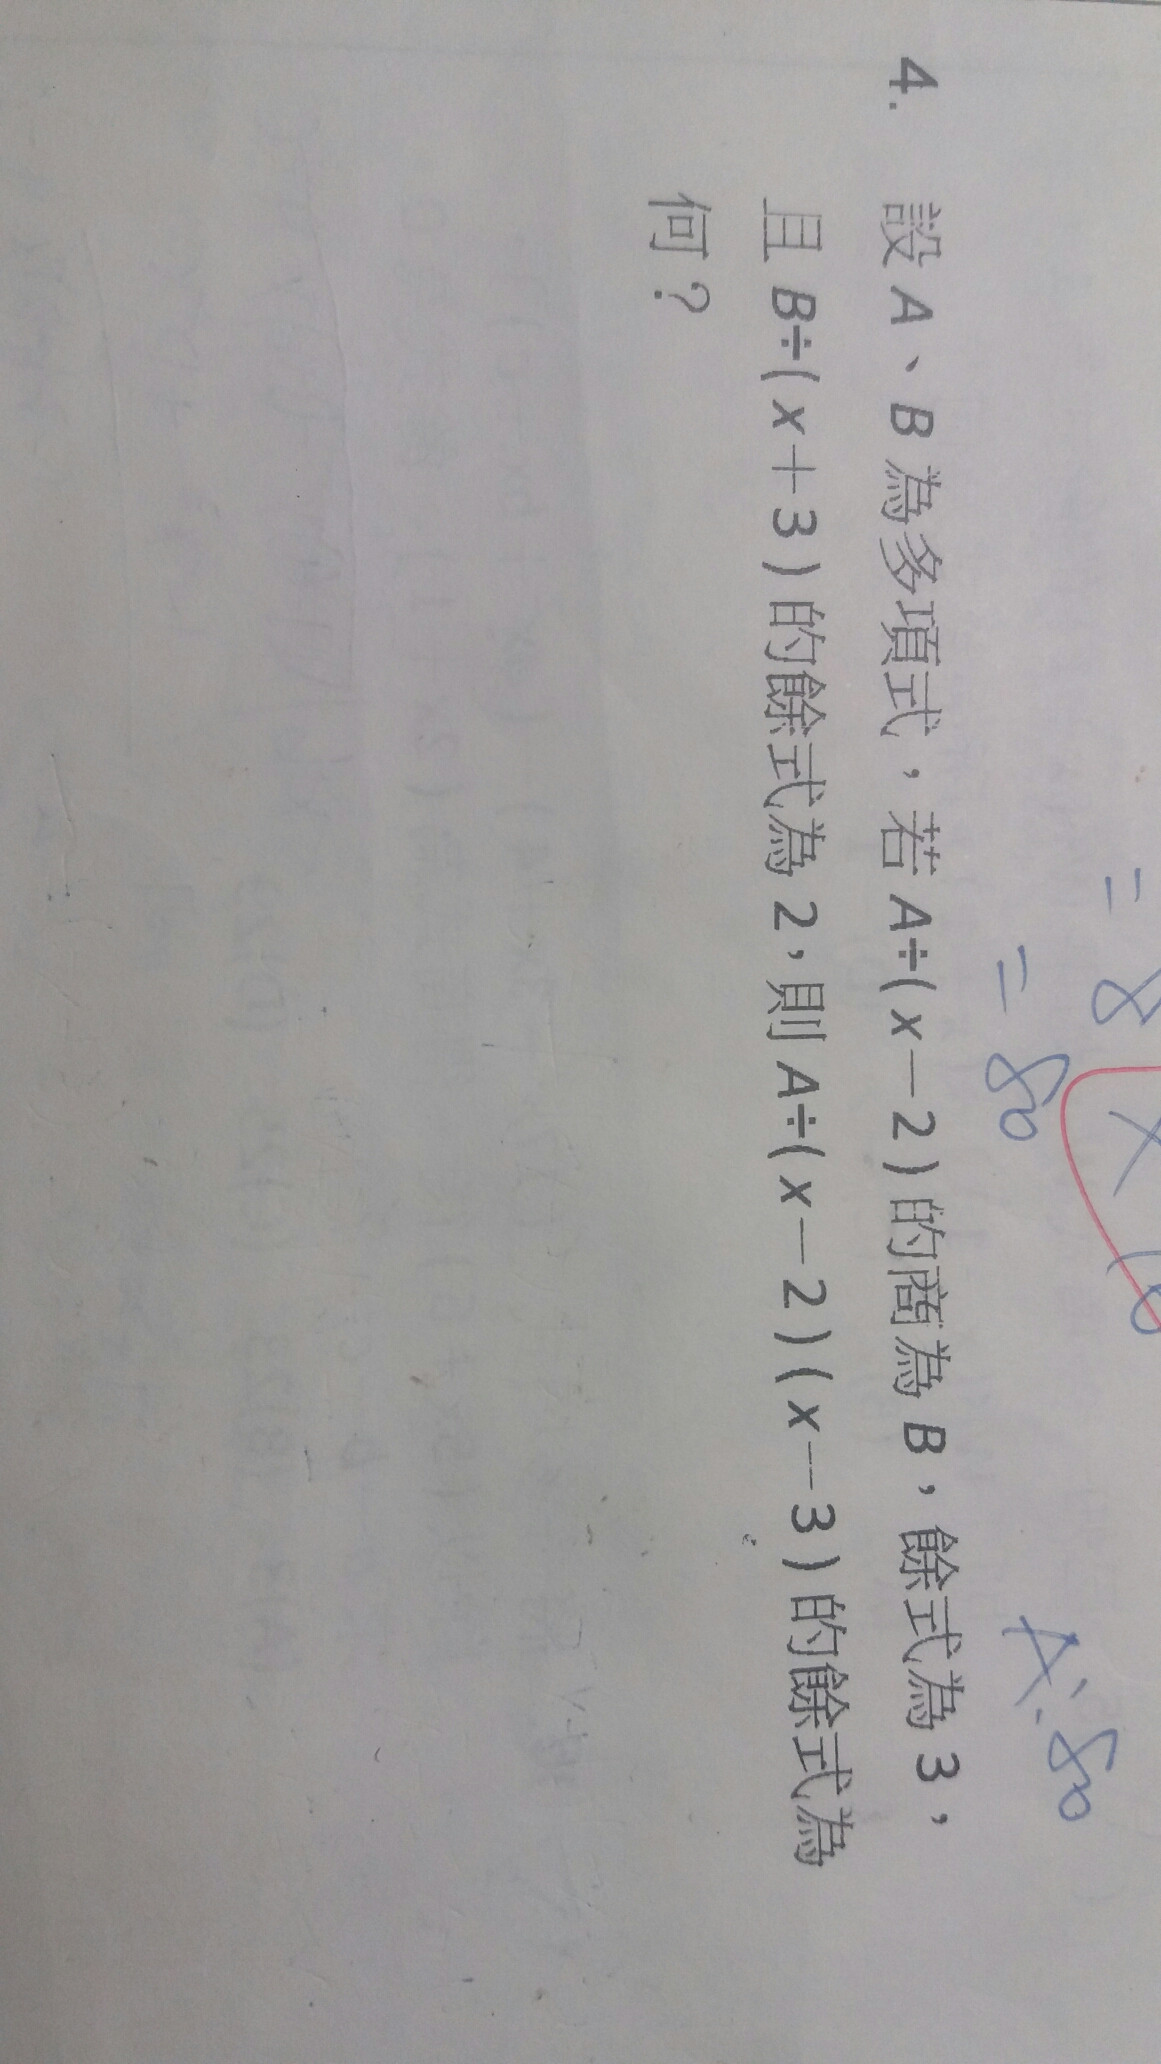 = 8
= 80
A: 80
4. 設 A、B 為多項式，若 A÷(x－2)的商為 B，餘式為 3，
且 B÷(x＋3)的餘式為 2，則 A÷(x－2)(x－3)的餘式為
何？